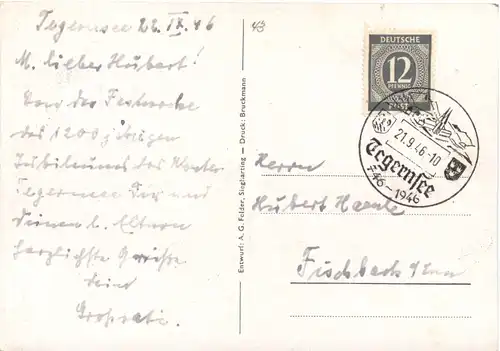 Tegernsee 22.IX.46
M. lieber Hubert!
Von der Festwoche
des 1200 jährigen
Jubiläums des Kloster
Tegernsee Dir und
Deinen l. Eltern
herzlichste Grüße
Dein
Großvati.
Entwurf: A. G. Felder, Sieglarting — Druck: Bruckmann
43
DEUTSCHE
12
PFENNIG
POST
21.9.46-10
Tegernsee
746-1946
Herrn
Hubert
Fischbach a/Inn